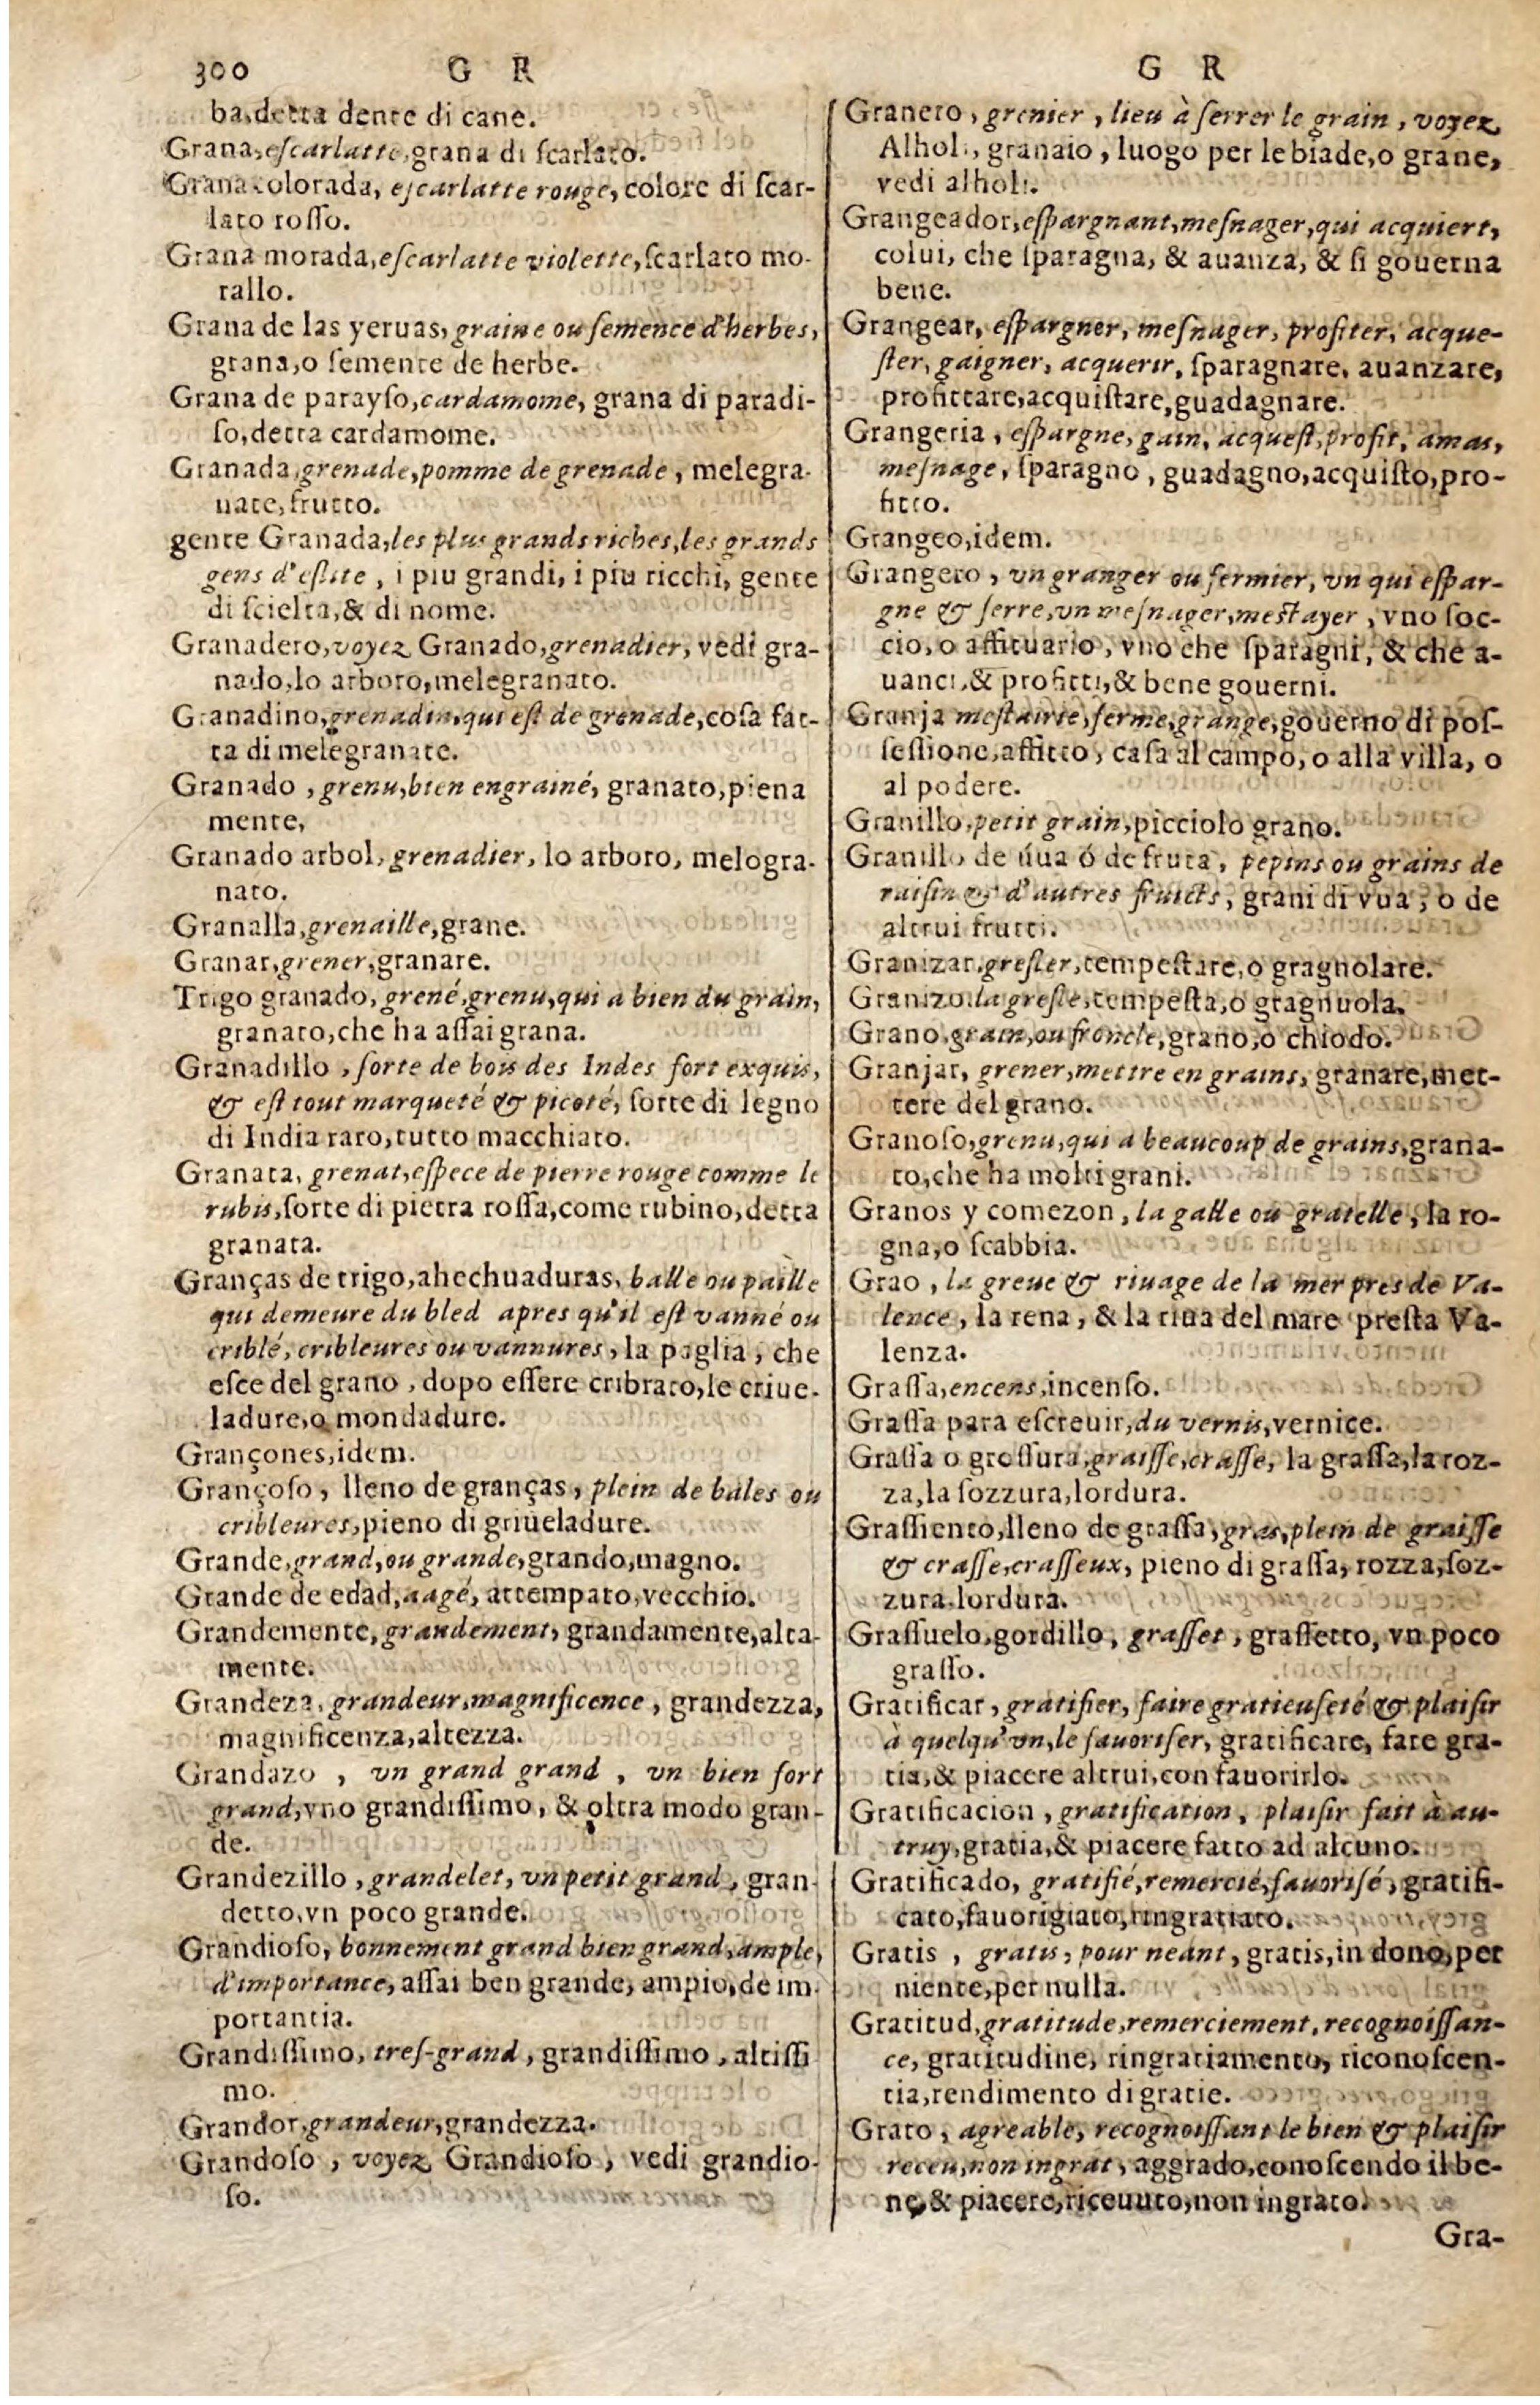 300 G R
ba,detta dente di cane.
Grana,eſcarlatte,grana di ſcarlato.
Grana colorada, eſcarlatte rouge, colore di ſcar-
lato roſſo.
Grana morada,eſcarlatte violette,ſcarlato mo-
rallo.
Grana de las yeruas, graine ou ſemence d'herbes,
grana,o ſemente de herbe.
Grana de parayſo,cardamome, grana di paradi-
ſo,detta cardamome.
Granada,grenade,pomme de grenade, melegra-
nate,frutto.
gente Granada,les plus grands riches,les grands
gens d'eſlite, i piu grandi, i piu ricchi, gente
di ſcielta,& di nome.
Granadero,voyez Granado,grenadier, vedi gra-
nado,lo arboro,melegranato.
Granadino,grenadin,qui eſt de grenade,coſa fat-
ta di melegranate.
Granado, grenu,bien engrainé, granato,piena
mente,
Granado arbol, grenadier, lo arboro, melogra-
nato.
Granalla,grenaille,grane.
Granar,grener,granare.
Trigo granado, grené,grenu,qui a bien du grain,
granato,che ha aſſai grana.
Granadillo, ſorte de bois des Indes fort exquis,
& eſt tout marqueté & picoté, ſorte di legno
di India raro,tutto macchiato.
Granata, grenat,eſpece de pierre rouge comme le
rubis,ſorte di pietra roſſa,come rubino,detta
granata.
Granças de trigo,ahechuaduras, balle ou paille
qui demeure du bled apres qu'il eſt vanné ou
criblé, cribleures ou vannures, la paglia, che
eſce del grano, dopo eſſere cribrato,le criue-
ladure,o mondadure.
Grançones,idem.
Grançoſo, lleno de granças, plein de bales ou
cribleures,pieno di griueladure.
Grande,grand,ou grande,grando,magno.
Grande de edad,aagé, attempato,vecchio.
Grandemente,grandement, grandamente,alta-
mente.
Grandeza,grandeur,magnificence, grandezza,
magnificenza,altezza.
Grandazo, vn grand grand, vn bien fort
grand,vno grandiſſimo, & oltra modo gran-
de.
Grandezillo, grandelet, vn petit grand, gran-
detto,vn poco grande.
Grandioſo, bonnement grand bien grand,ample,
d'importance, aſſai ben grande, ampio,de im-
portantia.
Grandiſſimo, treſ-grand, grandiſſimo, altiſſi
mo.
Grandor,grandeur,grandezza.
Grandoſo, voyez Grandioſo, vedi grandio-
ſo.
G R
Granero, grenier, lieu à ſerrer le grain, voyez
Alholi, granaio, luogo per le biade,o grane,
vedi alholi.
Grangeador,eſpargnant,meſnager,qui acquiert,
colui, che ſparagna, & auanza, & ſi gouerna
bene.
Grangear, eſpargner, meſnager, profiter, acque-
ſter, gaigner, acquerir, ſparagnare, auanzare,
profittare,acquiſtare,guadagnare.
Grangeria, eſpargne, gain, acqueſt,profit, amas,
meſnage, ſparagno, guadagno,acquiſto,pro-
fitto.
Grangeo,idem.
Grangero, vn granger ou fermier, vn qui eſpar-
gne & ſerre,vn meſnager,meſtayer, vno ſoc-
cio, o affituario, vno che ſparagni, & che a-
uanci,& profitti,& bene gouerni.
Granja meſtairie,ferme,grange,gouerno di poſ-
ſeſſione,affitto, caſa al campo, o alla villa, o
al podere.
Granillo,petit grain,picciolo grano.
Granillo de úua ó de fruta, pepins ou grains de
raiſin & d'autres fruicts, grani di vua, o de
altrui frutti.
Granizar,greſler,tempeſtare,o gragnolare.
Granizo,la greſle,tempeſta,o gragnuola.
Grano,grain,ou froncle,grano,o chiodo.
Granjar, grener,mettre en grains, granare,met-
tere del grano.
Granoſo,grenu,qui a beaucoup de grains,grana-
to,che ha molti grani.
Granos y comezon, la galle ou gratelle, la ro-
gna,o ſcabbia.
Grao, la greue & riuage de la mer pres de Va-
lence, la rena, & la riua del mare preſta Va-
lenza.
Graſſa,encens,incenſo.
Graſſa para eſcreuir,du vernis,vernice.
Graſſa o groſſura,graiſſe,craſſe, la graſſa,la roz-
za,la ſozzura,lordura.
Graſſiento,lleno de graſſa,gras,plein de graiſſe
& craſſe,craſſeux, pieno di graſſa, rozza,ſoz-
zura,lordura.
Graſſuelo,gordillo, graſſet, graſſetto, vn poco
graſſo.
Gratificar, gratifier, faire gratieuſeté & plaiſir
à quelqu'vn,le fauoriſer, gratificare, fare gra-
tia,& piacere altrui,con fauorirlo.
Gratificacion, gratification, plaiſir fait à au-
truy,gratia,& piacere fatto ad alcuno.
Gratificado, gratifié,remercié,fauoriſé, gratifi-
cato,fauorigiato,ringratiato.
Gratis, gratis, pour neant, gratis,in dono,per
niente,per nulla.
Gratitud,gratitude,remerciement,recognoiſſan-
ce, gratitudine, ringratiamento, riconoſcen-
tia,rendimento di gratie.
Grato, agreable, recognoiſſant le bien & plaiſir
receu,non ingrat, aggrado,conoſcendo il be-
ne,& piacere,riceuuto,non ingrato.
Gra-